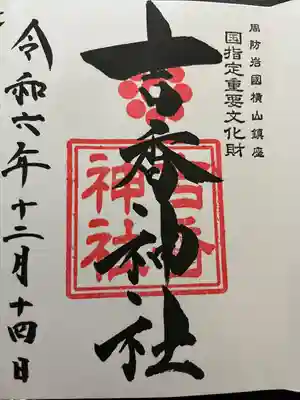 周防岩國横山鎮座
国指定重要文化財
吉香神社
吉香
神社
令和六年十二月十四日